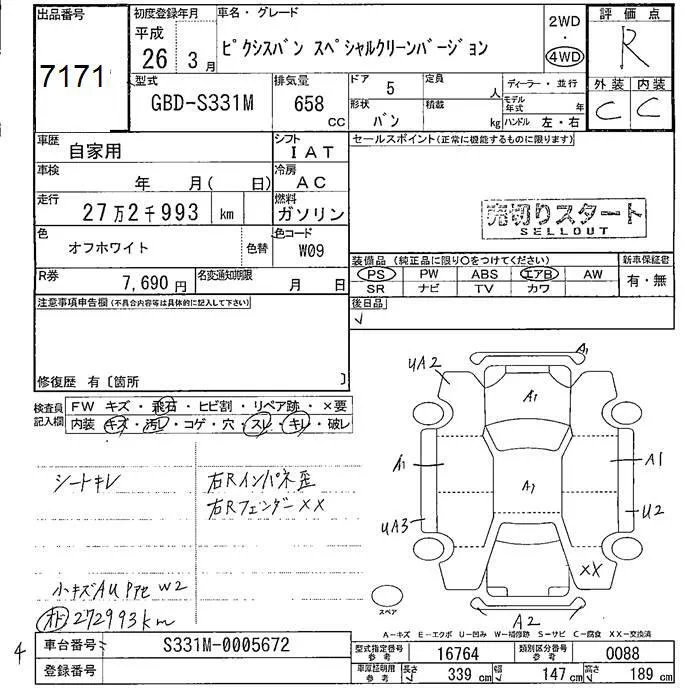 出品番号
7171
初度登録年月
平成
26 3月
車名・グレード
ピクシスバン スペシャルクリーンバージョン
2WD
・
4WD
評価点
R
外装 内装
C C
型式
GBD-S331M
排気量
658
CC
ドア 5
定員 人
形状 バン
積載 kg
ディーラー・並行
モデル年式 年
ハンドル 左・右
車歴
自家用
シフト
IAT
車検
年 月( 日)
冷房
AC
走行
27万2千993 km
燃料
ガソリン
色
オフホワイト
色替
色コード
W09
R券
7,690円
名変通知期限
月 日
セールスポイント(正常に機能するものに限ります)
売切りスタート
SELLOUT
装備品(純正品に限り○をつけてください)
新車保証書
PS PW ABS エアB AW
有・無
SR ナビ TV カワ
後日品
✓
注意事項申告欄(不具合内容等は具体的に記入して下さい)
修復歴 有〔箇所 〕
検査員
記入欄
FW キズ・飛石・ヒビ割・リペア跡・×要
内装 キズ・汚レ・コゲ・穴・スレ・キレ・破レ
シートキレ
右Rインパネ歪
右Rフェンダーxx
小キズAU Pアセ W2
オド 272993km
A1
UA2
A1
A1
A1
A1
UA3
U2
XX
A2
スペア
A-キズ E-エクボ U-凹み W-補修跡 S-サビ C-腐食 XX-交換済
4
車台番号
S331M-0005672
登録番号
型式指定番号
参考
16764
類別区分番号
参考
0088
車庫証明用
参考
長さ 339 cm
幅 147 cm
高さ 189 cm